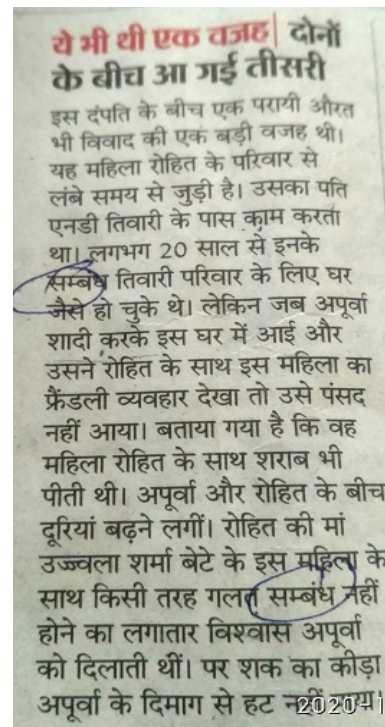 ये भी थी एक वजह| दोनों
के बीच आ गई तीसरी
इस दंपति के बीच एक परायी औरत
भी विवाद की एक बड़ी वजह थी।
यह महिला रोहित के परिवार से
लंबे समय से जुड़ी है। उसका पति
एनडी तिवारी के पास काम करता
था। लगभग 20 साल से इनके
सम्बंध तिवारी परिवार के लिए घर
जैसे हो चुके थे। लेकिन जब अपूर्वा
शादी करके इस घर में आई और
उसने रोहित के साथ इस महिला का
फ्रैंडली व्यवहार देखा तो उसे पंसद
नहीं आया। बताया गया है कि वह
महिला रोहित के साथ शराब भी
पीती थी। अपूर्वा और रोहित के बीच
दूरियां बढ़ने लगीं। रोहित की मां
उज्ज्वला शर्मा बेटे के इस महिला के
साथ किसी तरह गलत सम्बंध नहीं
होने का लगातार विश्वास अपूर्वा
को दिलाती थीं। पर शक का कीड़ा
अपूर्वा के दिमाग से हट नहीं
2020-1